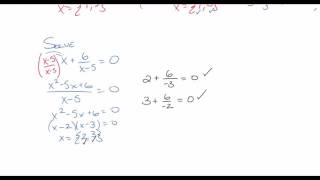 Solve
(x-5/x-5) x + 6/x-5 = 0
x²-5x+6/x-5 = 0
x²-5x+6=0
(x-2)(x-3)=0
x={2,3}
2 + 6/-3 = 0 ✓
3 + 6/-2 = 0 ✓